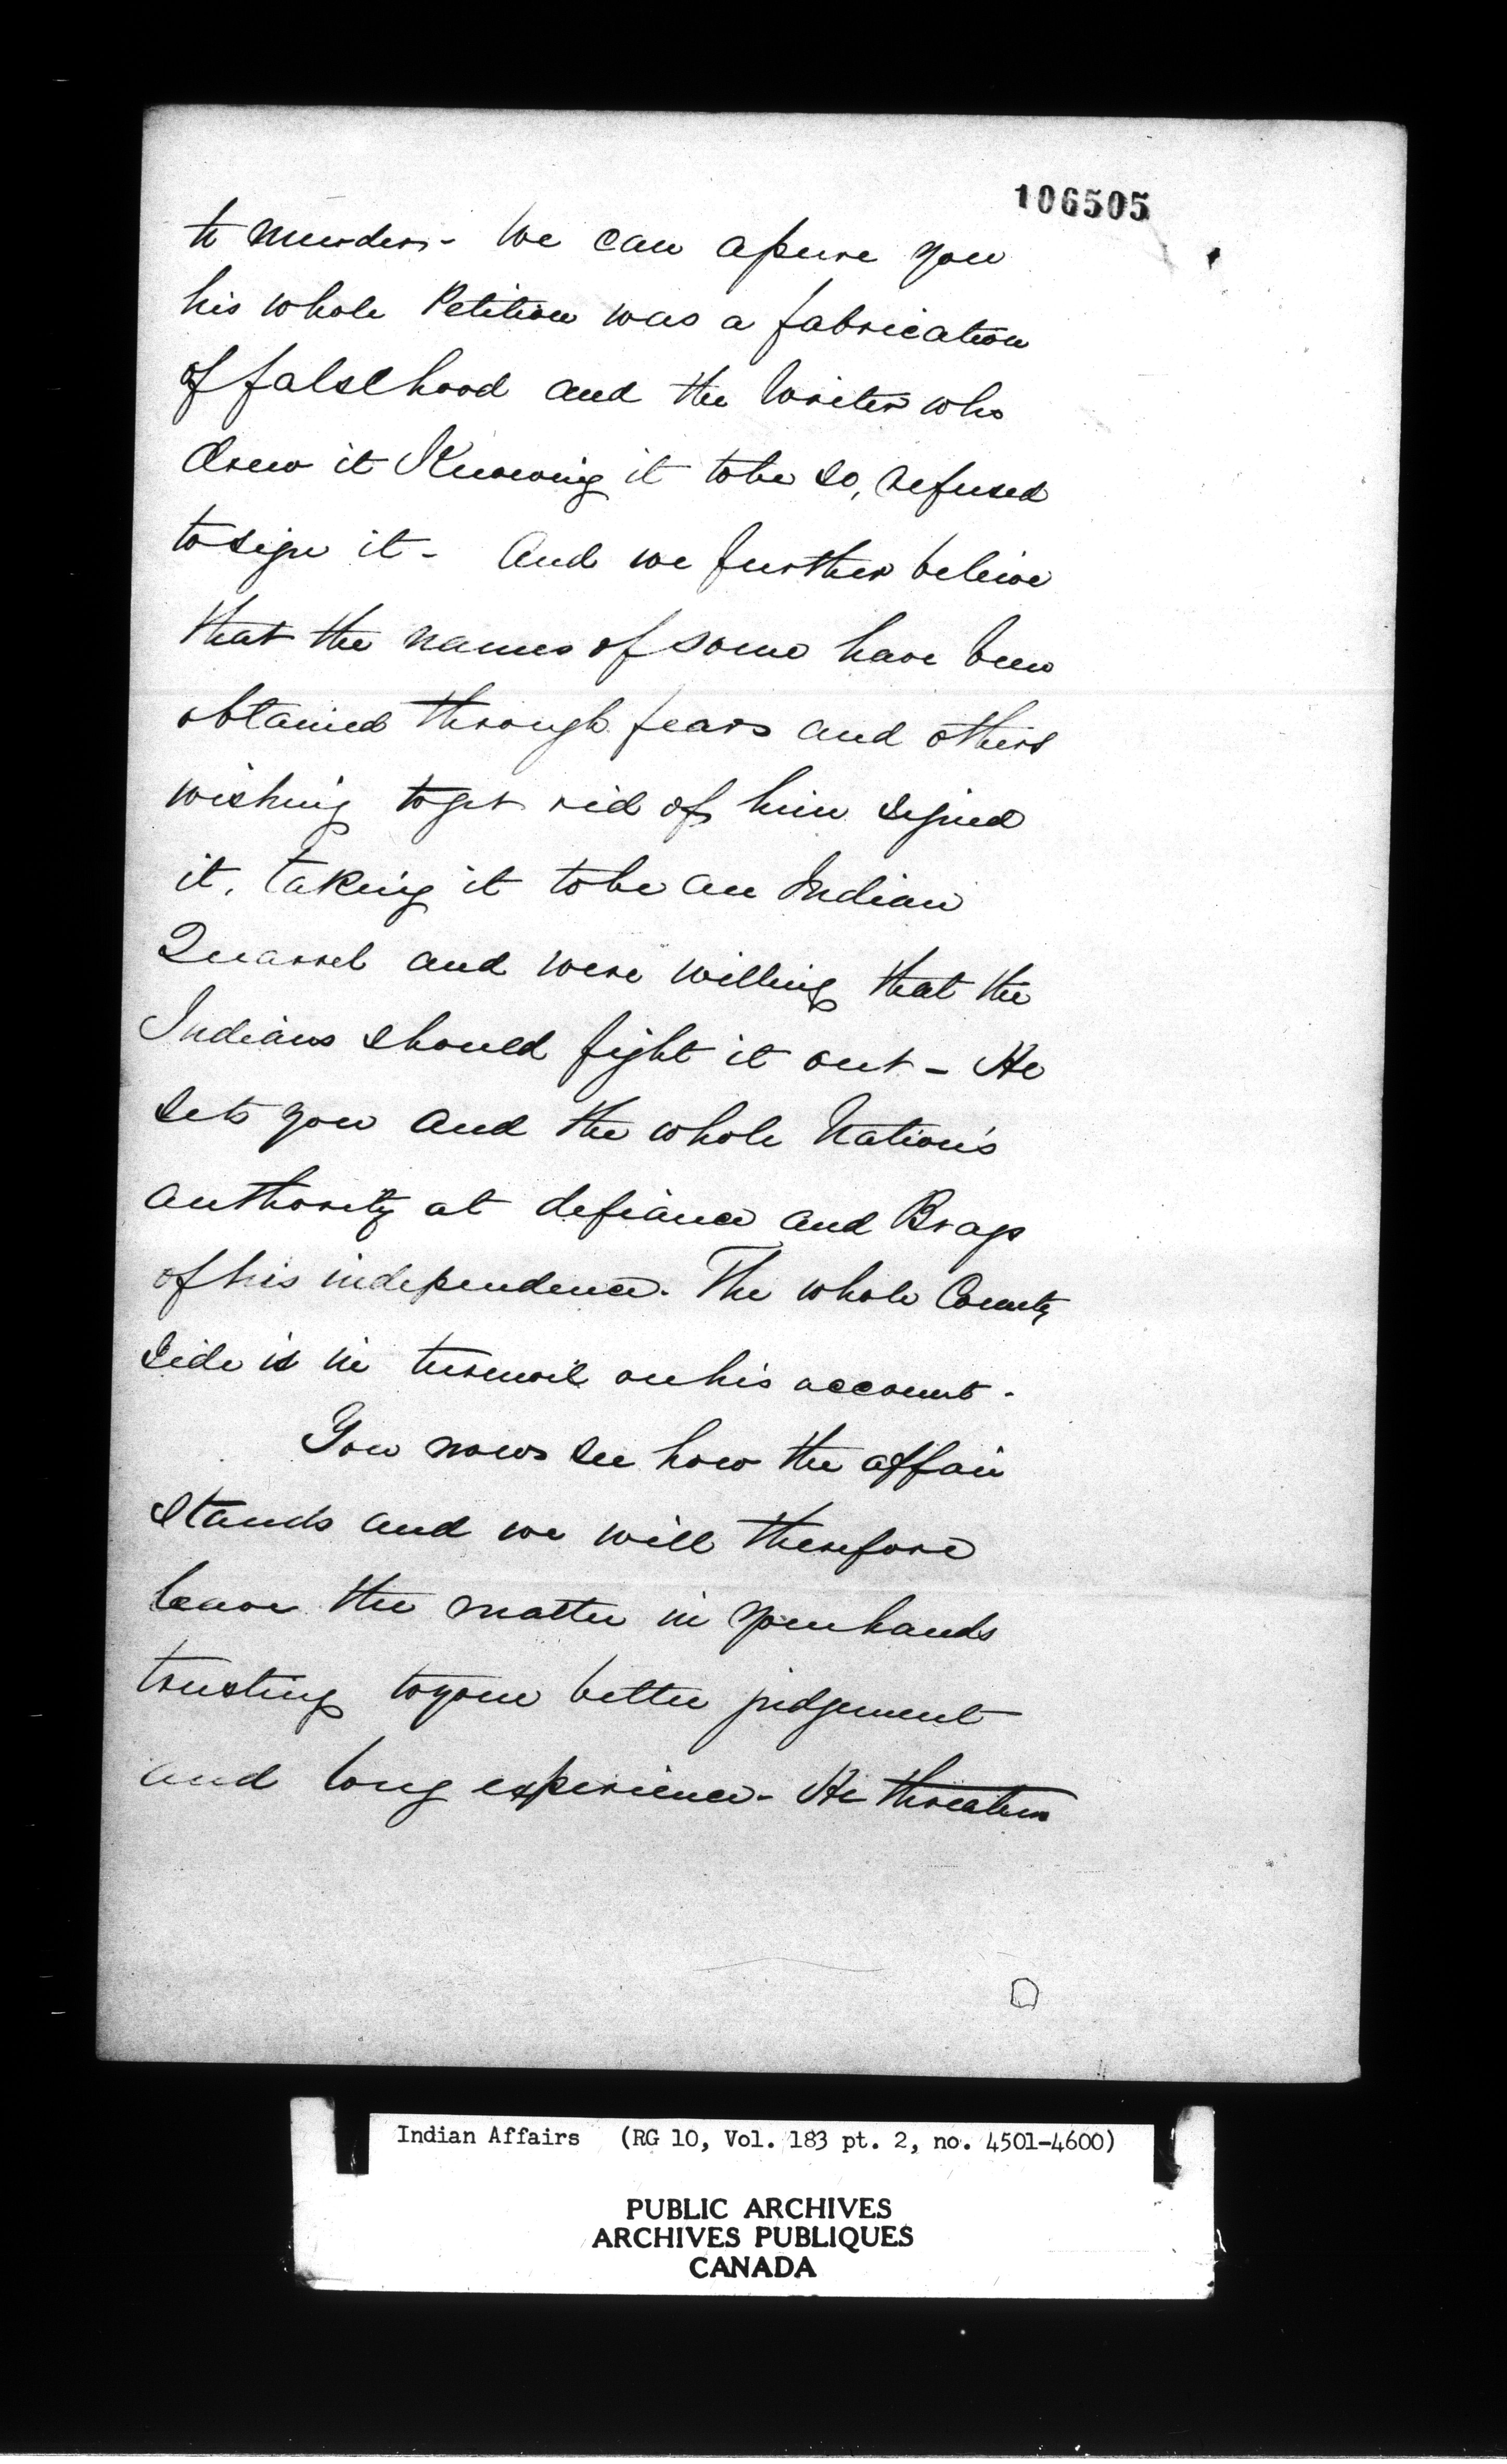 106505
to murder - We can assure you
his whole Petition was a fabrication
of falsehood and the Writer who
drew it Knowing it to be so, refused
to sign it - And we further believe
that the names of some have been
obtained through fears and others
wishing to get rid of him signed
it, taking it to be an Indian
Quarrel and were willing that the
Indians should fight it out - He
sets you and the whole Nation's
authority at defiance and Brags
of his independence. The whole County
side is in turmoil on his account -
You now see how the affair
stands and we will therefore
leave the matter in your hands
trusting to your better judgement
and long experience - He threatens
Indian Affairs (RG 10, Vol. 183 pt. 2, no. 4501-4600)
PUBLIC ARCHIVES
ARCHIVES PUBLIQUES
CANADA